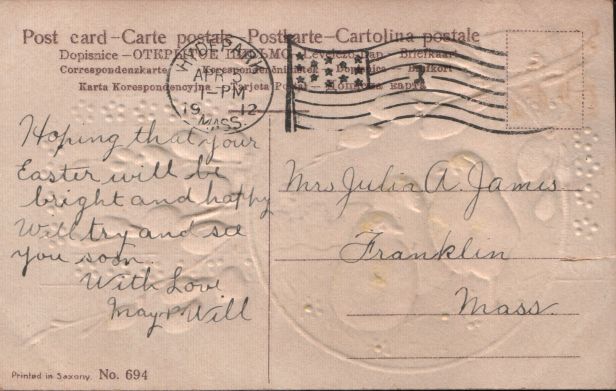 Post card – Carte postale – Postkarte – Cartolina postale
Dopisnice – ОТКРЫТОЕ ПИСЬМО – Levelező-Lap – Briefkaart
Correspondenzkarte – Korespondenční lístek – Dopisnica – Brefkort
Karta Korespondencyjna – Tarjeta Postal –
HYDE PARK
APR
-PM
19 12
MASS.
Hoping that your
Easter will be
bright and happy
Will try and see
you soon
With Love
May & Will
Mrs Julia A. James
Franklin
Mass.
Printed in Saxony. No. 694